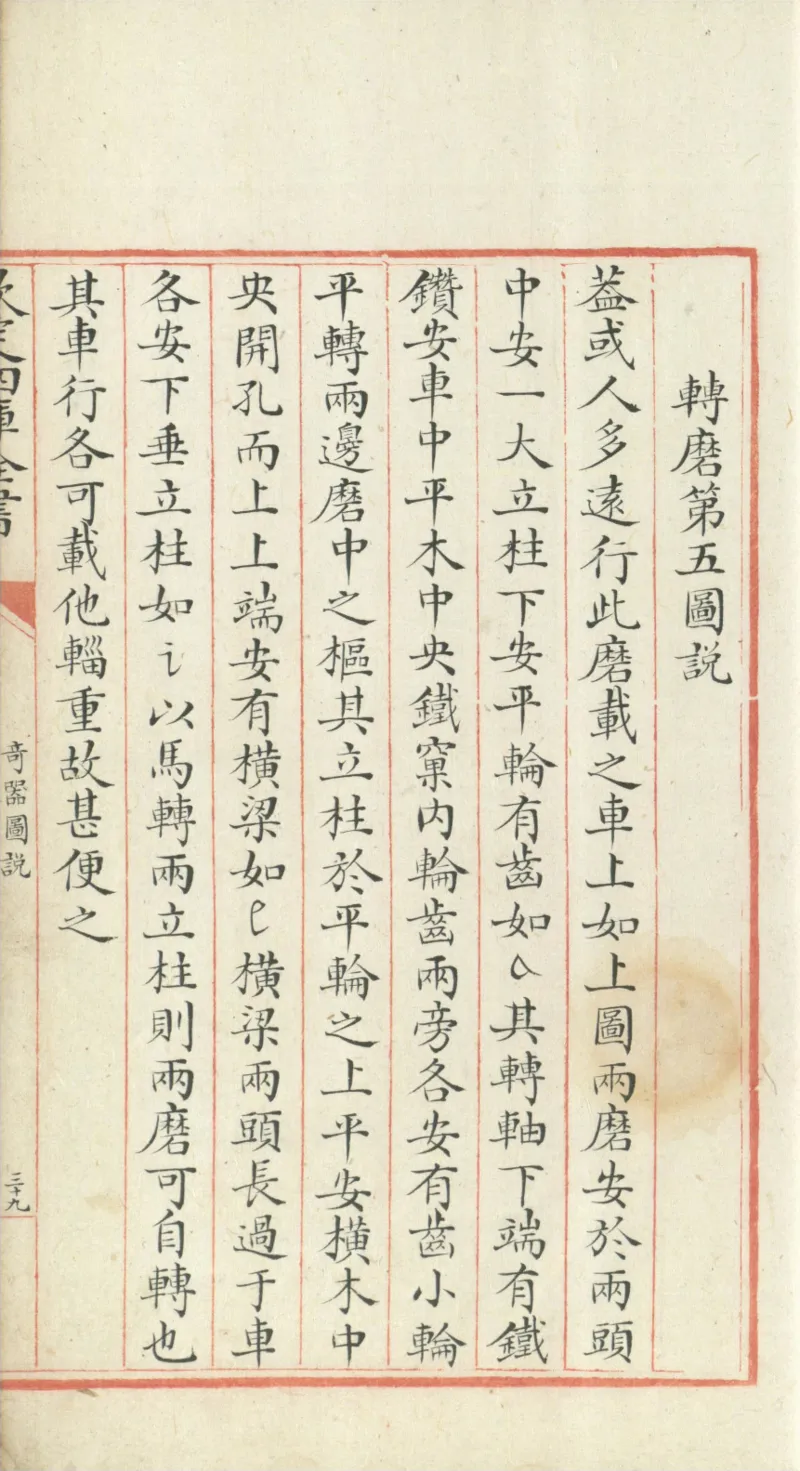 轉磨第五圖説
葢或人多遠行此磨載之車上如上圖兩磨安於兩頭
中安一大立柱下安平輪有齒如其轉軸下端有鐵
鑽安車中平木中央鐵窠内輪齒兩旁各安有齒小輪
平轉兩邊磨中之樞其立柱於平輪之上平安横木中
央開孔而上上端安有横梁如横梁兩頭長過于車
各安下垂立柱如以馬轉兩立柱則兩磨可自轉也
其車行各可載他輜重故甚便之
欽定四庫全書
奇器圖説
三十九